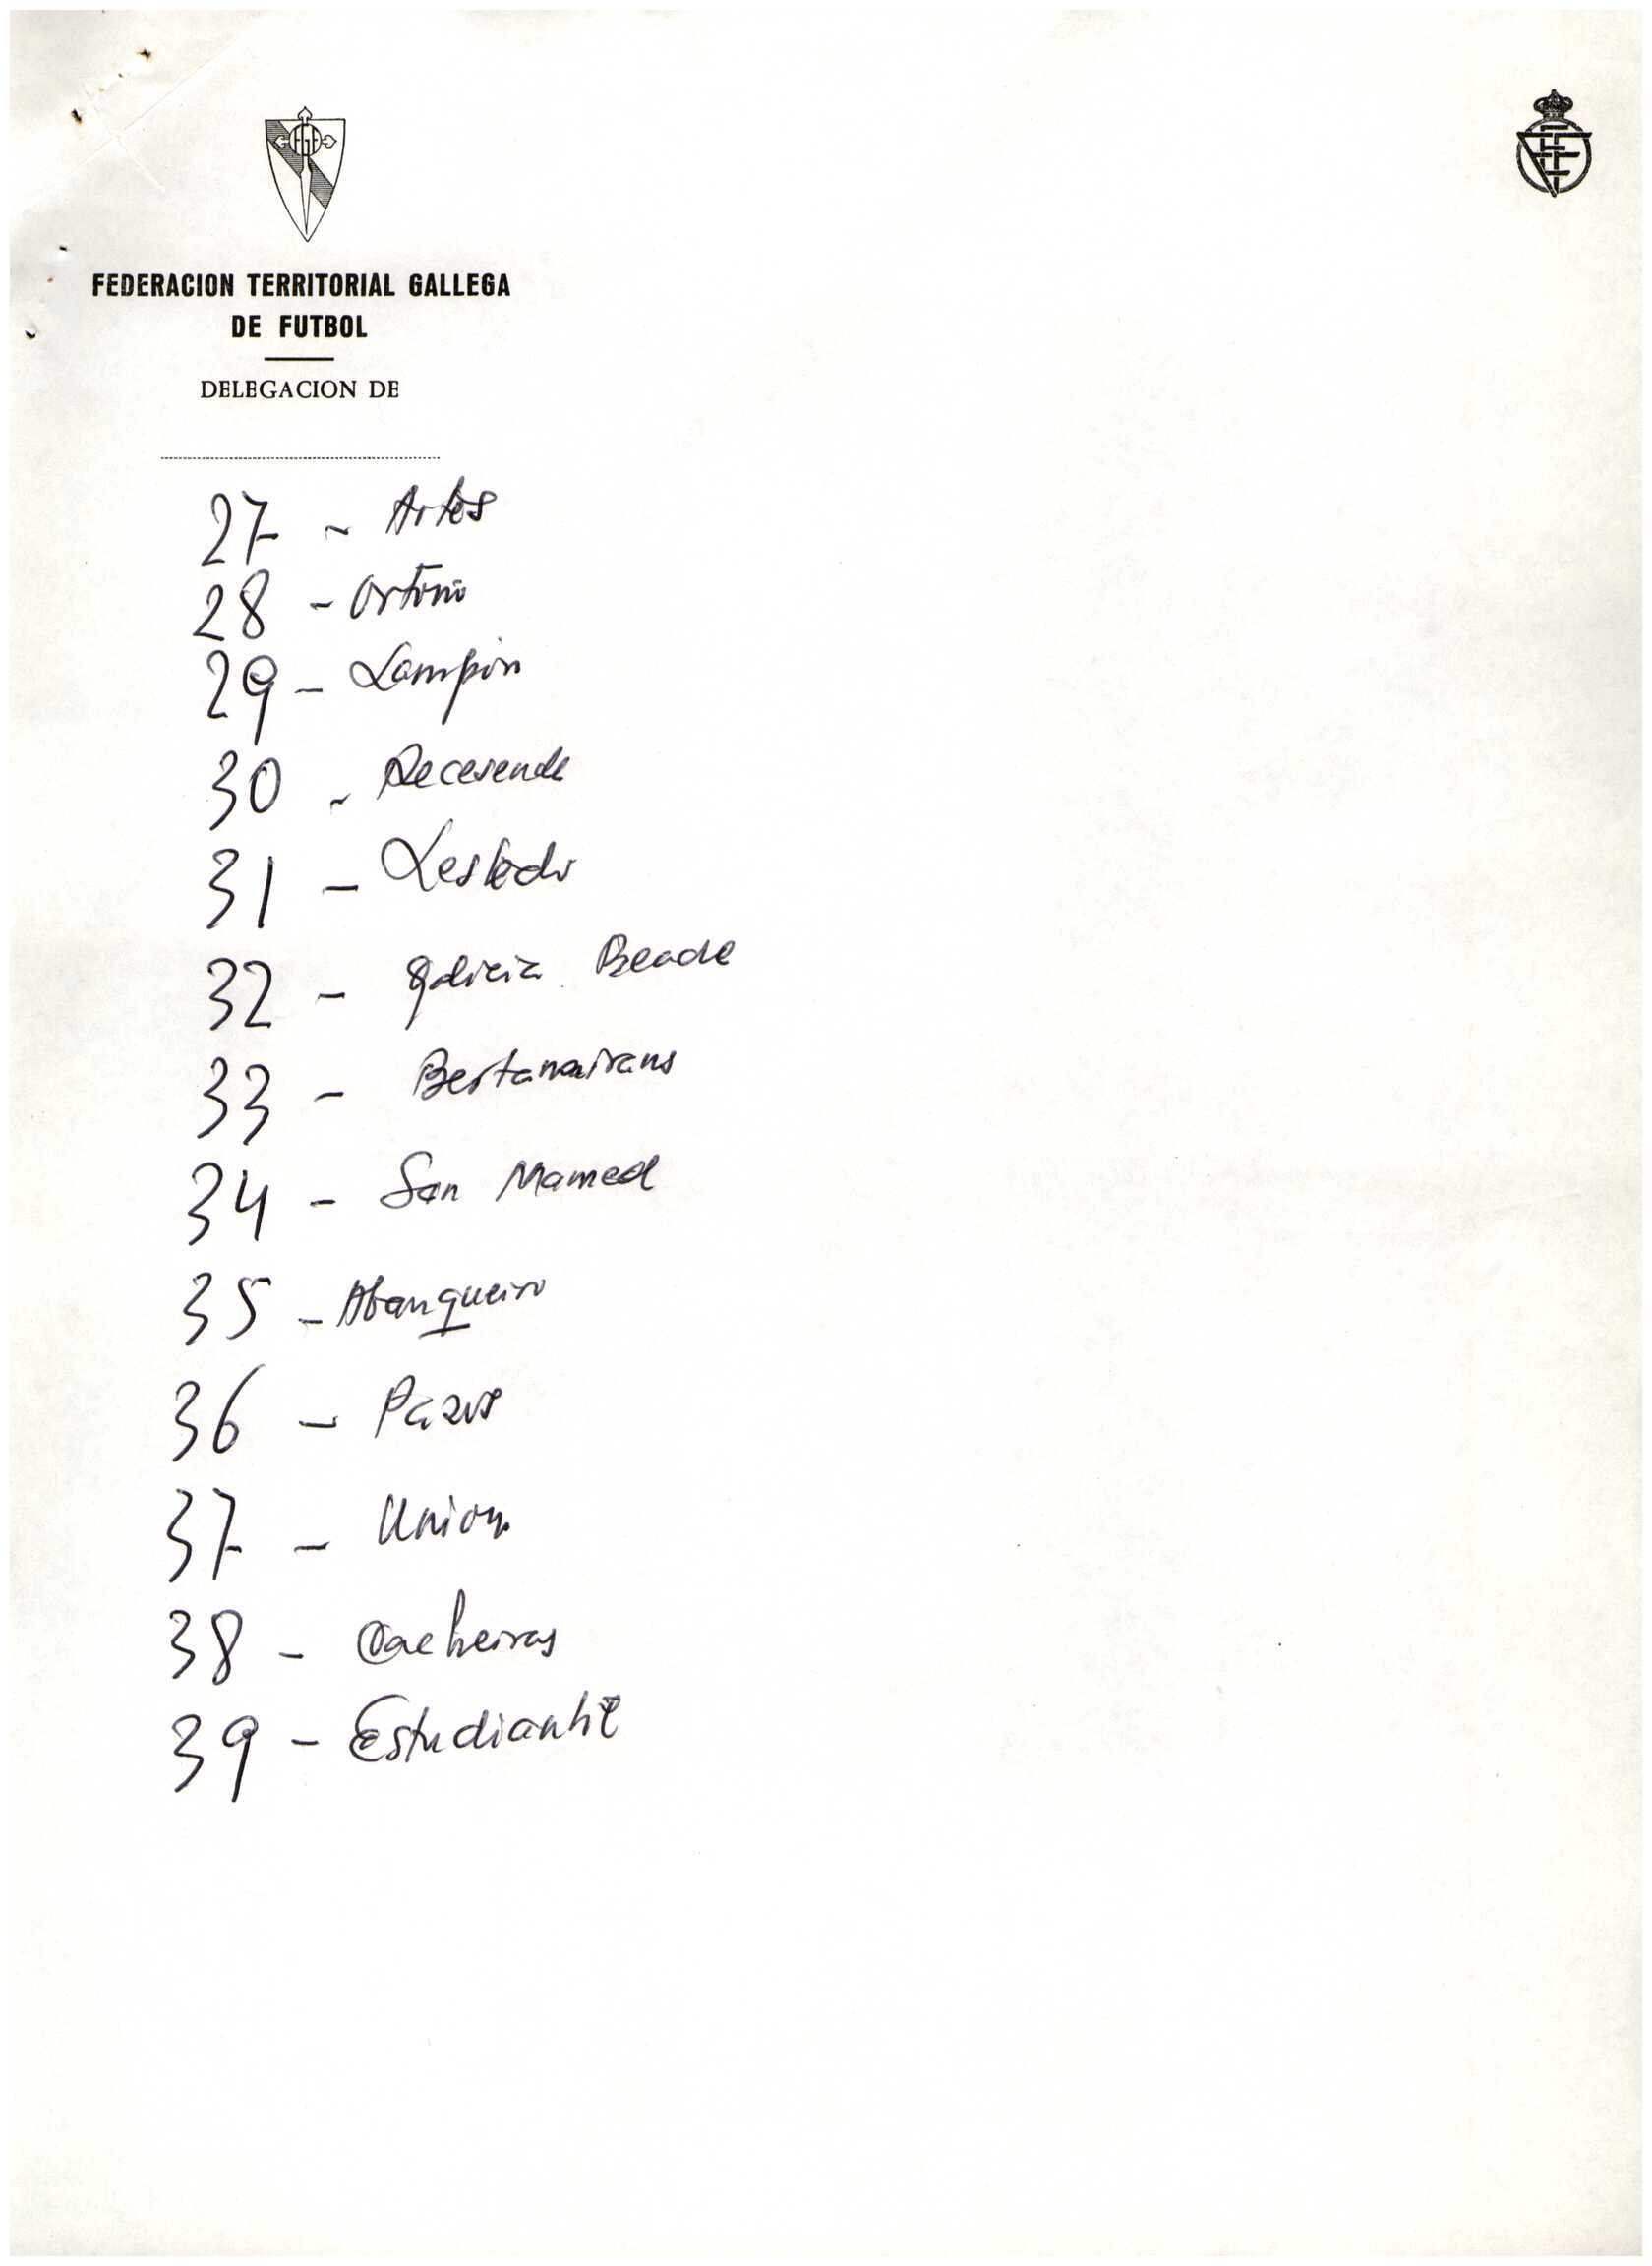 FEDERACION TERRITORIAL GALLEGA
DE FUTBOL
DELEGACION DE
27 - Artes
28 - Ortoño
29 - Lampón
30 - Recesende
31 - Lestedo
32 - Galicia Beade
33 - Bertamirans
34 - San Mamed
35 - Abanqueiro
36 - Pazos
37 - Union
38 - Cacheiras
39 - Estudiantil